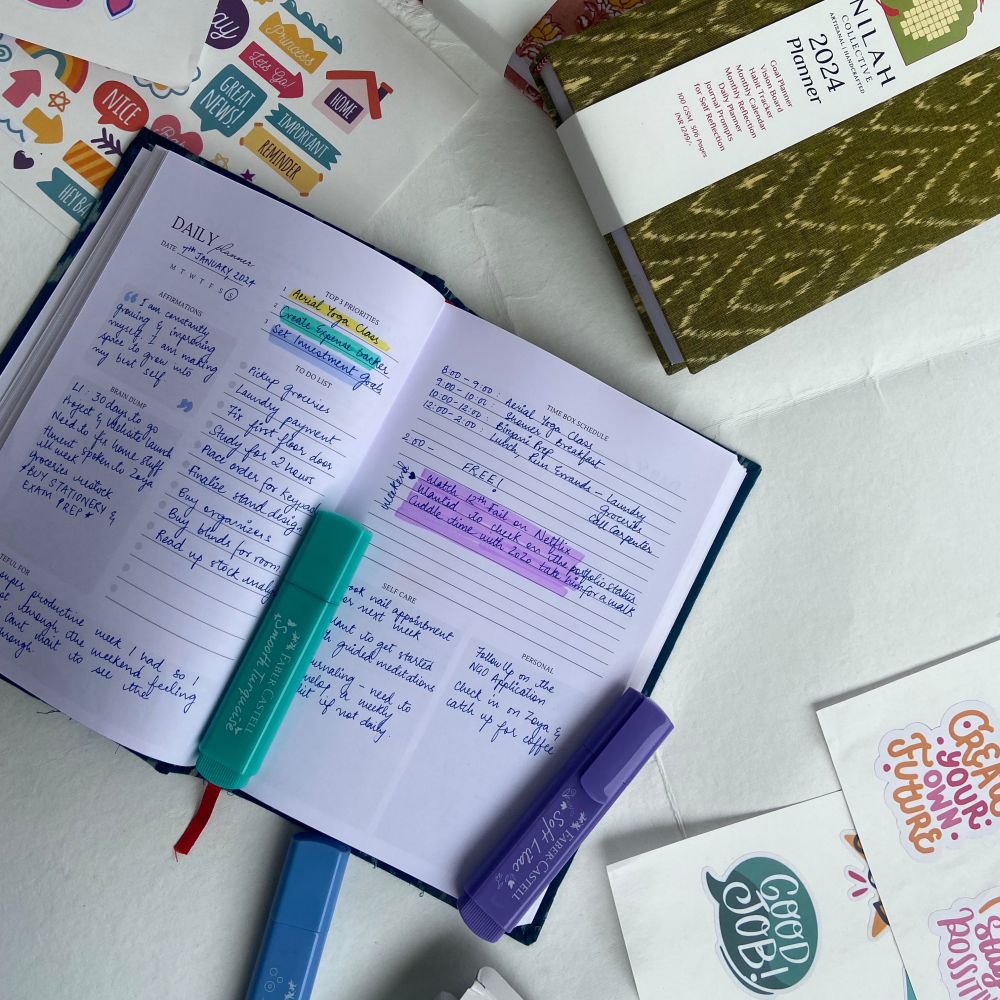 Princess
Let's Go!
NICE
GREAT
NEWS!
HOME
IMPORTANT
REMINDER
NILAH
COLLECTIVE
ARTISANAL | HANDCRAFTED
2024
Planner
Goal Planner
Vision Board
Habit Tracker
Monthly Calendar
Monthly Reflection
Daily Planner
Journal Prompts
for Self Reflection
100 GSM 506 Pages
INR 1249/-
DAILY planner
DATE 7th JANUARY 2024
M T W T F S S
AFFIRMATIONS
I am constantly
growing & improving
myself. I am making
space to grow into
my best self
BRAIN DUMP
L1: 30 days to go
Project & Website launch
Need to fix home stuff
spoken to Zoya
all week
groceries restock
*BUY STATIONERY &
EXAM PREP*
TEFUL FOR
super productive week I had, so I
through the weekend feeling
Can't wait to see the
TOP 3 PRIORITIES
1 Aerial Yoga Class
2 Create Expense tracker
3 Set Investment goals
TO DO LIST
Pickup groceries
Laundry payment
Fix first floor door
Study for 2 hours
Place order for keypad
Finalise stand design
Buy organizers
Buy blinds for room
Read up stock
TIME BOX SCHEDULE
8:00 - 9:00: Aerial Yoga Class
9:00 - 10:00: Shower Breakfast
10:00-12:00: Binge Prep
12:00-2:00: Lunch, Run Errands - Laundry
groceries
Call Carpenter
2:00 -
FREE!
weekend
Watch 12th Fail on Netflix
Wanted to check on the portfolio stakes
Cuddle time with 2020 take him for a walk
SELF CARE
ook nail appointment
or next week
ant to get started
h guided meditations
urnaling - need to
velop a weekly
bit if not daily.
PERSONAL
Follow Up on the
NGO Application
Check in on Zoya &
catch up for coffee
FABER-CASTELL
Smooth Turquoise
FABER-CASTELL
Soft Lilac
CREATE
YOUR
OWN
FUTURE
GOOD
JOB!